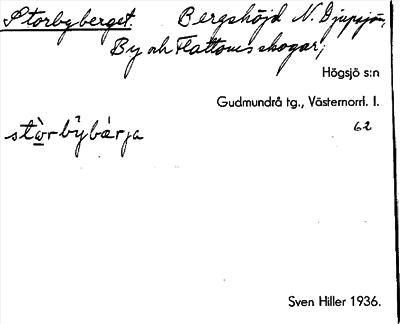 Storbyberget. Bergshöjd N. Djupsjön,
By och Flattoms skogar;
Högsjö s:n
Gudmundrå tg., Västernorrl. l.
62
stòrbýbárja
Sven Hiller 1936.